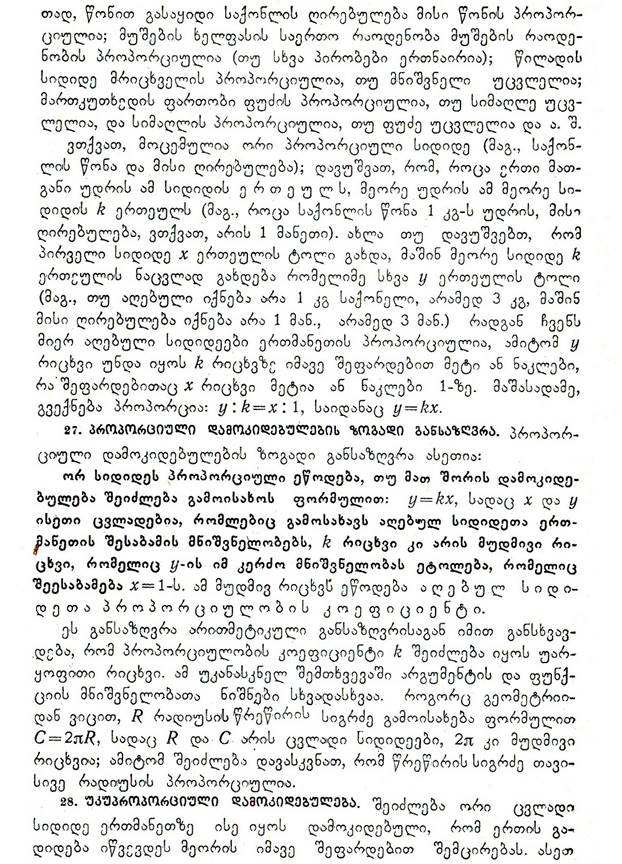 თად, წონით გასაყიდი საქონლის ღირებულება მისი წონის პროპორ-
ციულია; მუშების ხელფასის საერთო რაოდენობა მუშების რაოდე-
ნობის პროპორციულია (თუ სხვა პირობები ერთნაირია); წილადის
სიდიდე მრიცხველის პროპორციულია, თუ მნიშვნელი უცვლელია;
მართკუთხედის ფართობი ფუძის პროპორციულია, თუ სიმაღლე უცვ-
ლელია, და სიმაღლის პროპორციულია, თუ ფუძე უცვლელია და ა. შ.
ვთქვათ, მოცემულია ორი პროპორციული სიდიდე (მაგ., საქონ-
ლის წონა და მისი ღირებულება); დავუშვათ, რომ, როცა ერთი მათ-
განი უდრის ამ სიდიდის ე რ თ ე უ ლ ს, მეორე უდრის ამ მეორე სი-
დიდის k ერთეულს (მაგ., როცა საქონლის წონა 1 კგ-ს უდრის, მისი
ღირებულება, ვთქვათ, არის 1 მანეთი). ახლა თუ დავუშვებთ, რომ
პირველი სიდიდე x ერთეულის ტოლი გახდა, მაშინ მეორე სიდიდე k
ერთეულის ნაცვლად გახდება რომელიმე სხვა y ერთეულის ტოლი
(მაგ., თუ აღებული იქნება არა 1 კგ საქონელი, არამედ 3 კგ, მაშინ
მისი ღირებულება იქნება არა 1 მან., არამედ 3 მან.) რადგან ჩვენს
მიერ აღებული სიდიდეები ერთმანეთის პროპორციულია, ამიტომ y
რიცხვი უნდა იყოს k რიცხვზე იმავე შეფარდებით მეტი ან ნაკლები,
რა შეფარდებითაც x რიცხვი მეტია ან ნაკლები 1-ზე. მაშასადამე,
გვექნება პროპორცია: y : k=x : 1, საიდანაც y=kx.
27. პროპორციული დამოკიდებულების ზოგადი განსაზღვრა. პროპორ-
ციული დამოკიდებულების ზოგადი განსაზღვრა ასეთია:
ორ სიდიდეს პროპორციული ეწოდება, თუ მათ შორის დამოკიდე-
ბულება შეიძლება გამოისახოს ფორმულით: y=kx, სადაც x და y
ისეთი ცვლადებია, რომლებიც გამოსახავს აღებულ სიდიდეთა ერთ-
მანეთის შესაბამის მნიშვნელობებს, k რიცხვი კი არის მუდმივი რი-
ცხვი, რომელიც y-ის იმ კერძო მნიშვნელობას ეტოლება, რომელიც
შეესაბამება x=1-ს. ამ მუდმივ რიცხვს ეწოდება ა ღ ე ბ უ ლ ს ი დ ი-
დ ე თ ა პ რ ო პ ო რ ც ი უ ლ ო ბ ი ს კ ო ე ფ ი ც ი ე ნ ტ ი.
ეს განსაზღვრა არითმეტიკული განსაზღვრისაგან იმით განსხვავ-
დება, რომ პროპორციულობის კოეფიციენტი k შეიძლება იყოს უარ-
ყოფითი რიცხვი. ამ უკანასკნელ შემთხვევაში არგუმენტის და ფუნქ-
ციის მნიშვნელობათა ნიშნები სხვადასხვაა. როგორც გეომეტრიი-
დან ვიცით, R რადიუსის წრეწირის სიგრძე გამოისახება ფორმულით
C=2πR, სადაც R და C არის ცვლადი სიდიდეები, 2π კი მუდმივი
რიცხვია; ამიტომ შეიძლება დავასკვნათ, რომ წრეწირის სიგრძე თავი-
სივე რადიუსის პროპორციულია.
28. უკუპროპორციული დამოკიდებულება. შეიძლება ორი ცვლადი
სიდიდე ერთმანეთზე ისე იყოს დამოკიდებული, რომ ერთის გა-
დიდება იწვევდეს მეორის იმავე შეფარდებით შემცირებას. ასეთ